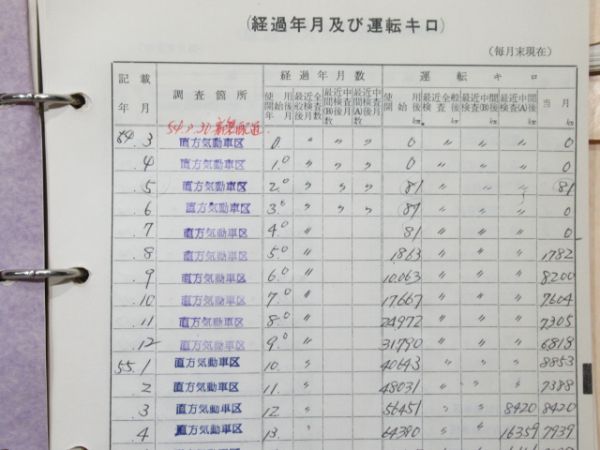 (経過年月及び運転キロ)
(毎月末現在)
記載年月 調査箇所 経過年月数 運転キロ
使用開始後年月 最近全般検査後月数 最近中間検査(B)後月数 最近中間検査(A)後月数 使用開始後km 最近全般検査後km 最近中間(B)検査後km 最近中間(A)検査後km 当月km
54.3.30 新製配置
54.3 直方気動車区 0. 〃 〃 〃 0 〃 〃 〃 0
.4 直方気動車区 1.0 〃 〃 〃 0 〃 〃 〃 0
.5 直方気動車区 2.0 〃 〃 〃 81 〃 〃 〃 81
.6 直方気動車区 3.0 〃 〃 〃 81 〃 〃 〃 0
.7 直方気動車区 4.0 〃 81 〃 〃 〃 0
.8 直方気動車区 5.0 〃 1863 〃 〃 〃 1782
.9 直方気動車区 6.0 〃 10,063 〃 〃 〃 8200
.10 直方気動車区 7.0 〃 17667 〃 〃 〃 7604
.11 直方気動車区 8.0 〃 24972 〃 〃 〃 7305
.12 直方気動車区 9.0 〃 31790 〃 〃 〃 6818
55.1 直方気動車区 10. 〃 40643 〃 〃 〃 8853
.2 直方気動車区 11. 〃 48031 〃 〃 〃 7388
.3 直方気動車区 12. 〃 56451 〃 〃 8420 8420
.4 直方気動車区 13. 〃 64390 〃 〃 16359 7939